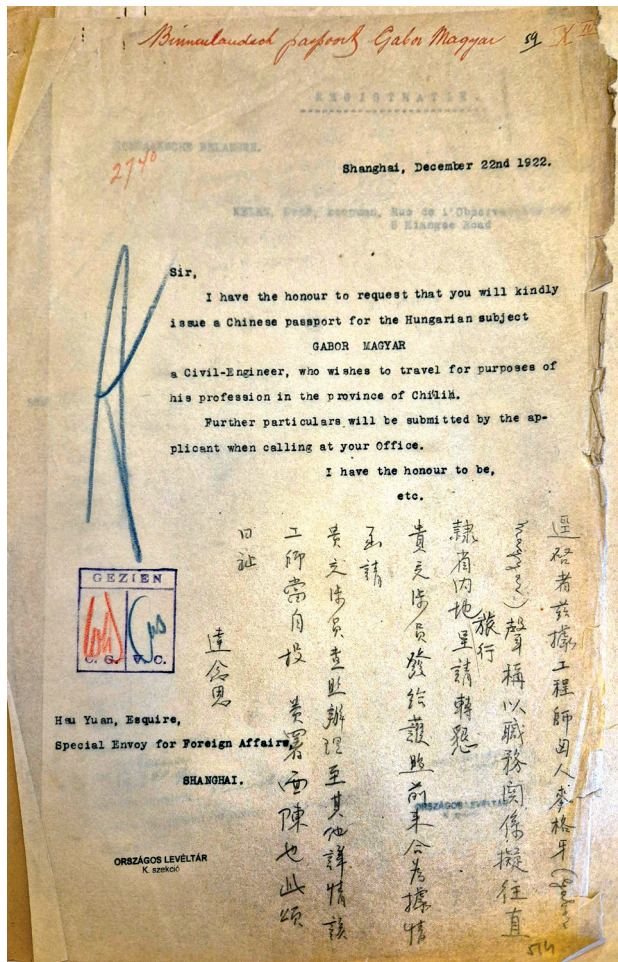 Binnenlandsch paspoort Gabor Magyar 59 X IV
REGISTRATIE.
HONGAARSCHE BELANGEN.
2740
Shanghai, December 22nd 1922.
Rue de l'Observatoire
5 Kiangse Road
Sir,
I have the honour to request that you will kindly
issue a Chinese passport for the Hungarian subject
GABOR MAGYAR
a Civil-Engineer, who wishes to travel for purposes of
his profession in the province of Chilih.
Further particulars will be submitted by the ap-
plicant when calling at your Office.
I have the honour to be,
etc.
逕啓者茲據工程師 人麥格牙(Gabor
Magyar)聲稱以職務関係擬往直
隸省内地旅行呈請轉懇
貴交涉員發給護照前來合爲據情
函請
貴交涉員查照辦理至其他詳情該
工師當自投 貴署面陳也此頌
日祉
達念恩
GEZIEN
C. G. V. C.
Hsu Yuan, Esquire,
Special Envoy for Foreign Affairs,
SHANGHAI.
ORSZÁGOS LEVÉLTÁR
K
ORSZÁGOS LEVÉLTÁR
K. szekció
514